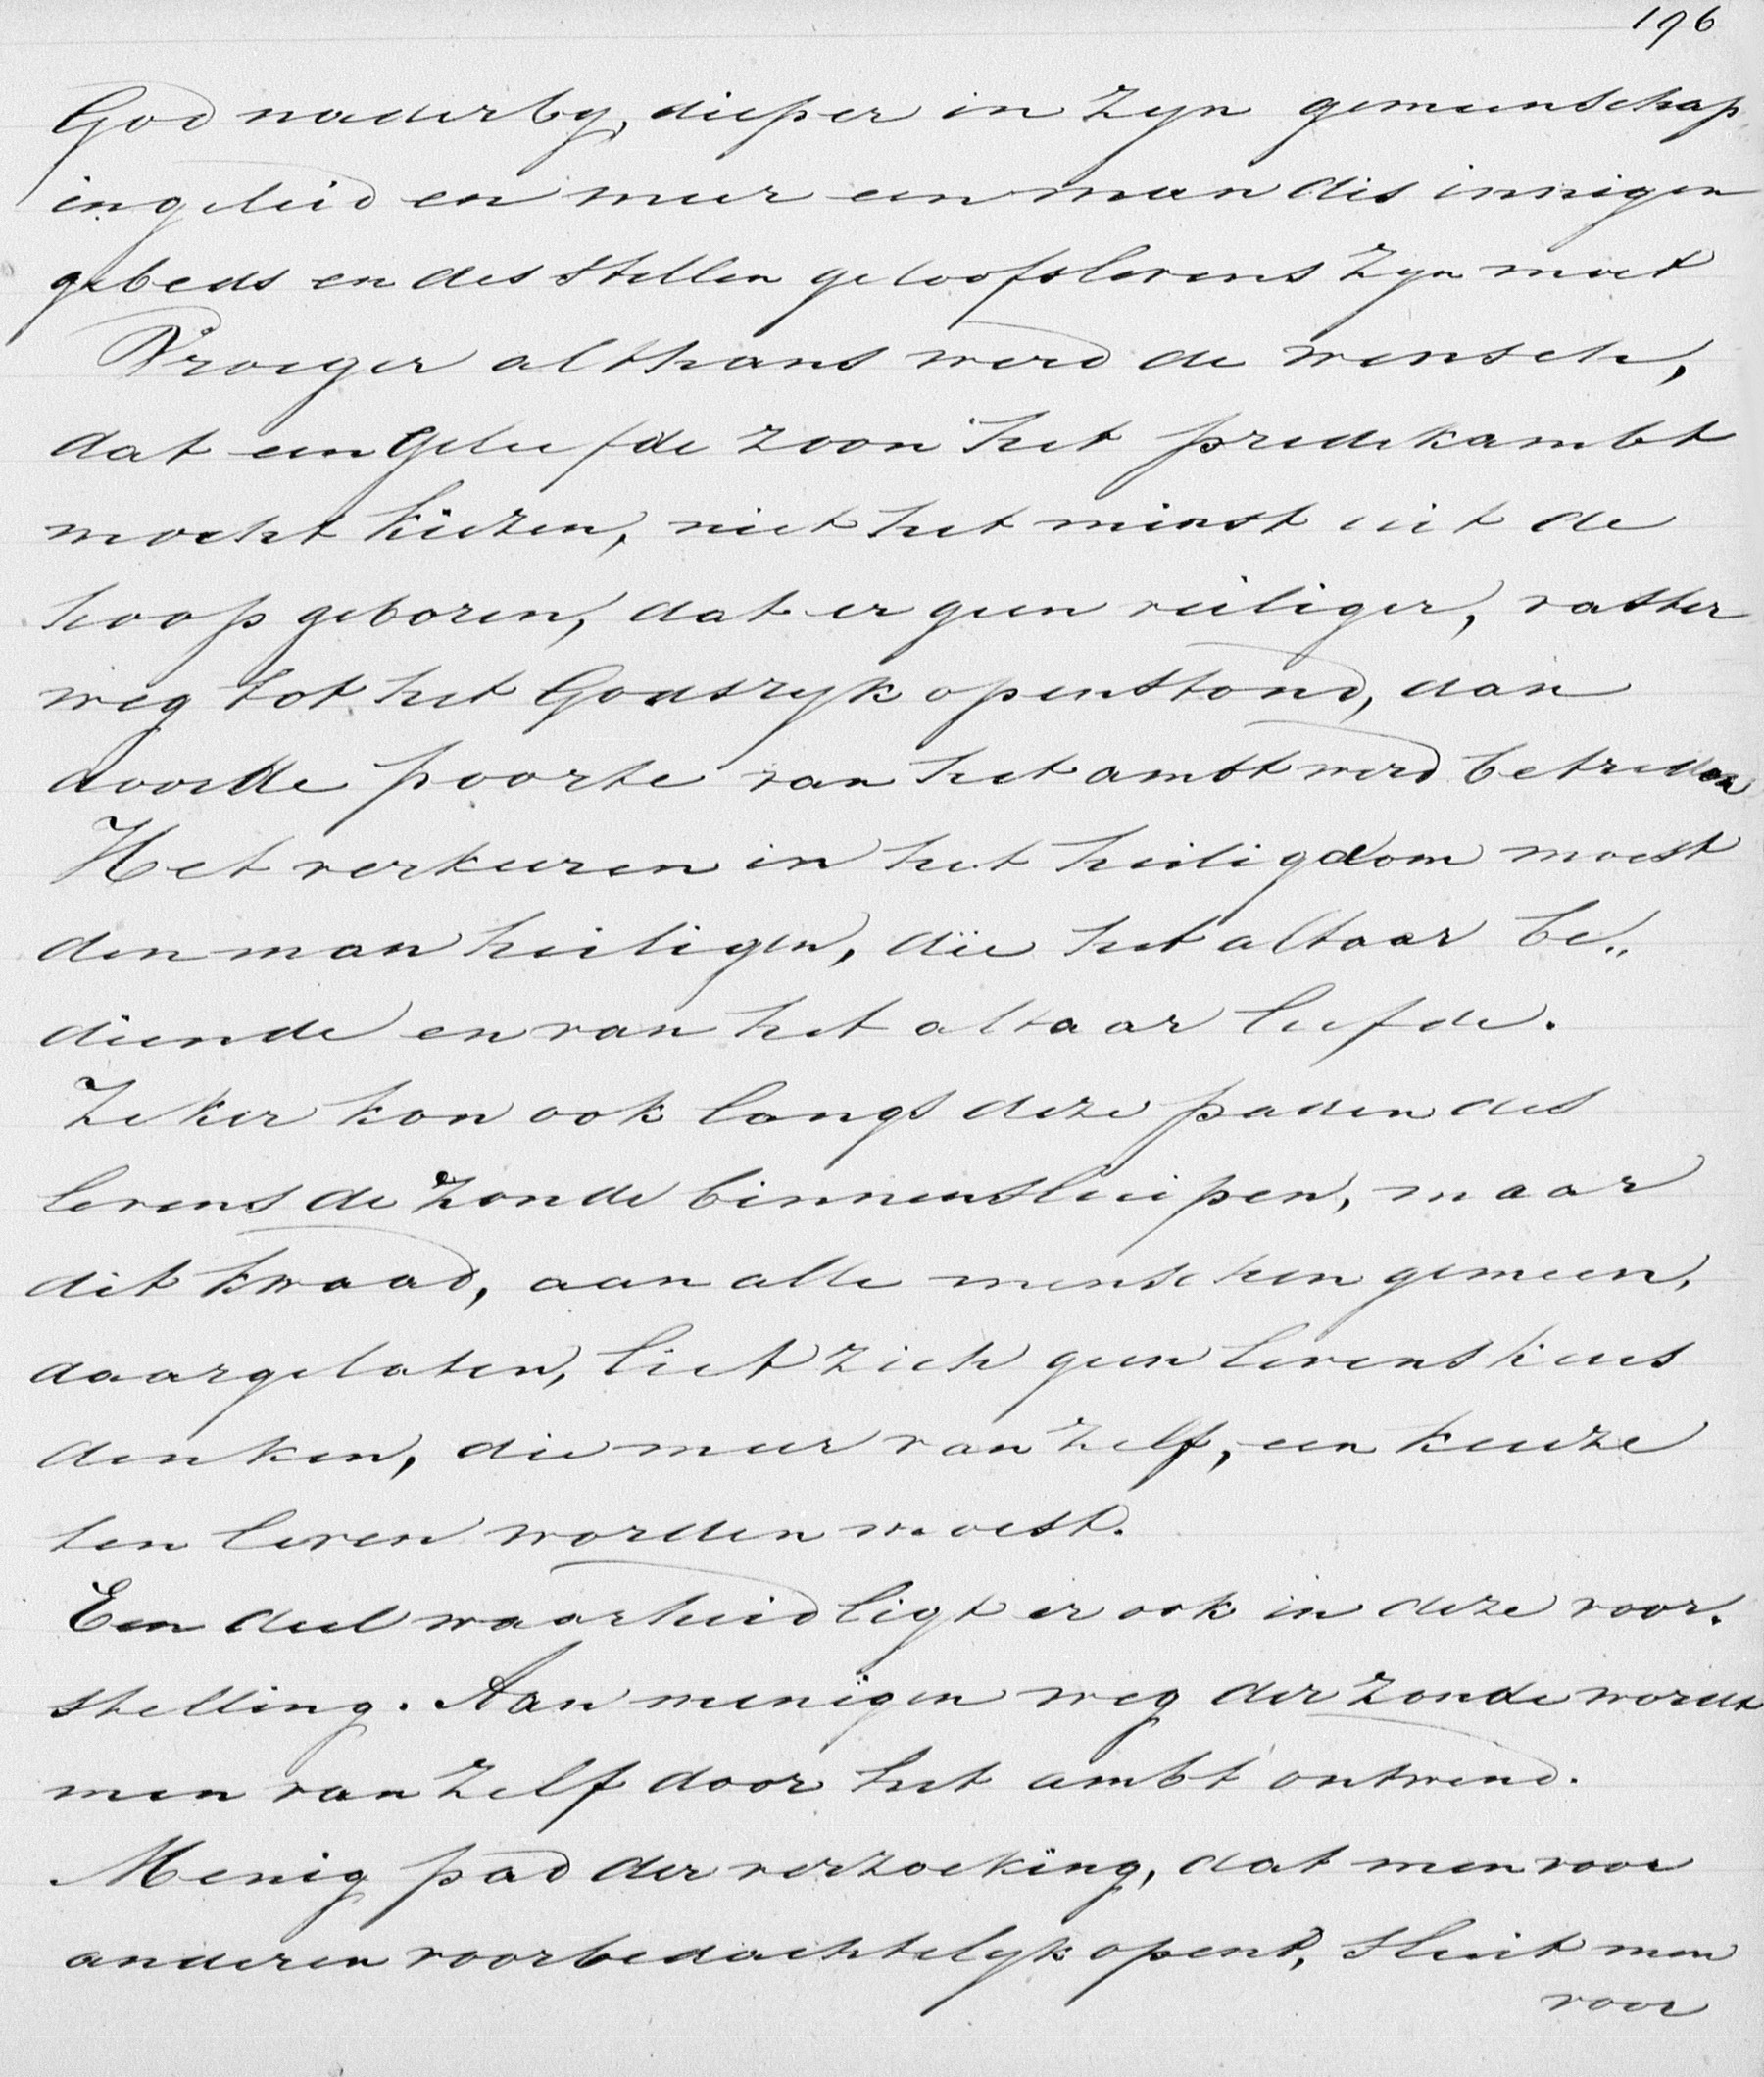 196
God naderby, dieper in zyn gemeenschap
ingeleid en meer een man des innigen
gebeds en des stillen geloofslevens zyn moet
Vroeger althans werd de wensch,
dat een geliefde zoon het predikambt
mocht kiezen, niet het minst uit de
hoop geboren, dat er geen veiliger, vaster
weg tot het Godsryk openstond, dan
door de poorte van het ambt werd betreden
Het verkeeren in het heiligdom moest
den man heiligen, die het altaar be„
diende en van het altaar leefde.
Zeker kon ook langs deze paden des
levens de zonde binnensluipen, maar
dit kwaad, aan alle menschen gemeen,
daargelaten, liet zich geen levenskeus
denken, die meer van zelf, een keuze
ten leven worden moest.
Een deel waarheid ligt er ook in deze voor.
stelling. Aan menigen weg der zonde wordt
men van zelf door het ambt ontwend.
Menig pad der verzoeking, dat men voor
anderen voorbedachtelyk opent, sluit men
voor